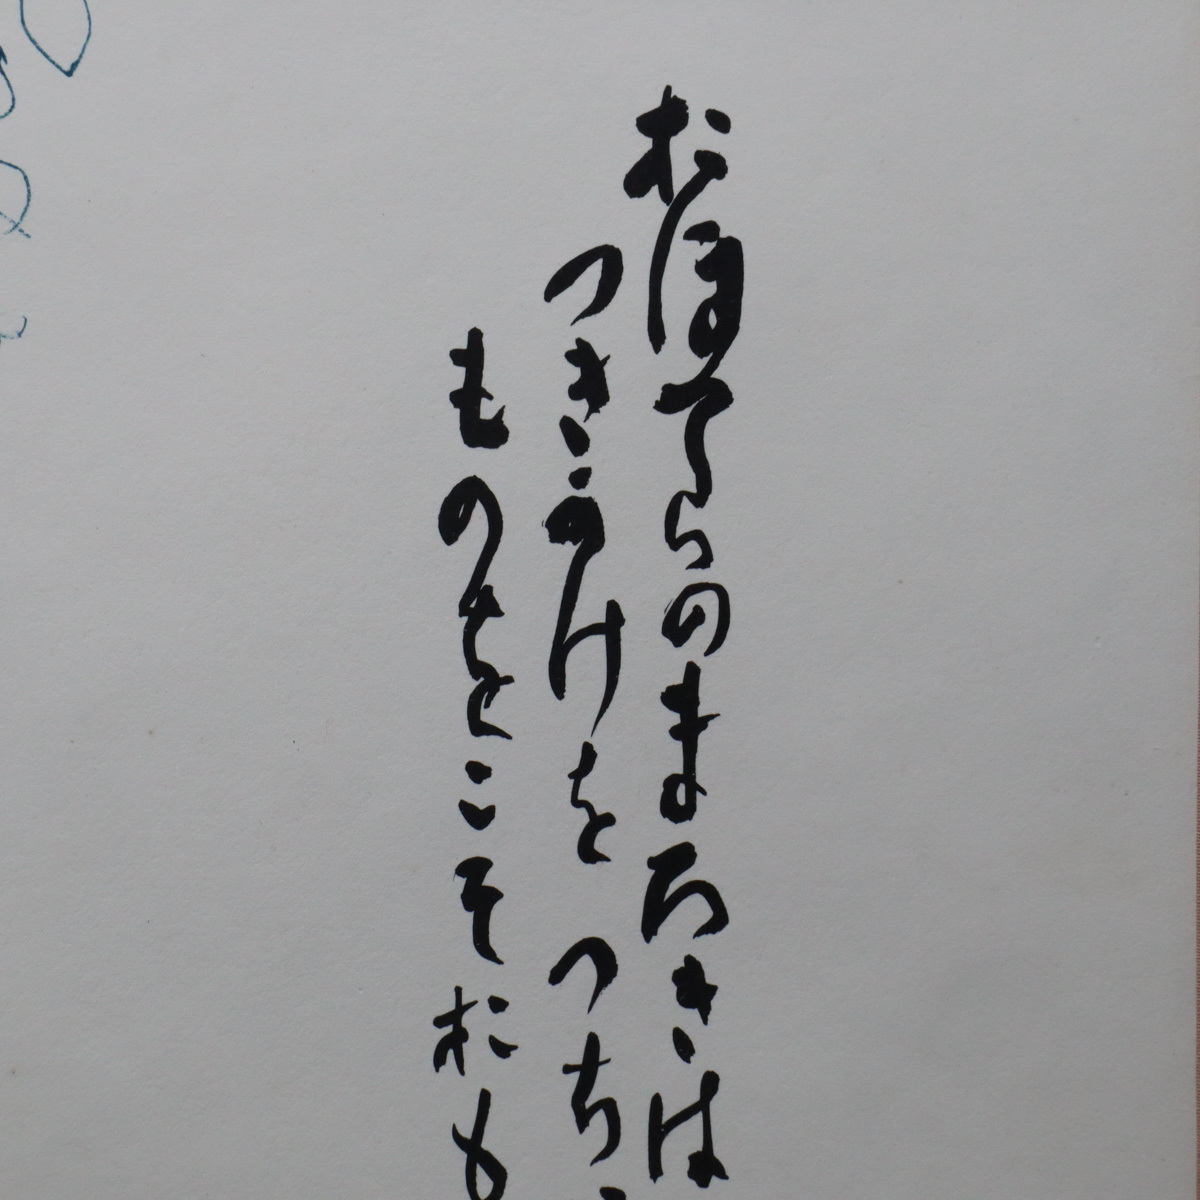 おほてらのまろきは
つきかけを つち
ものをこそおも